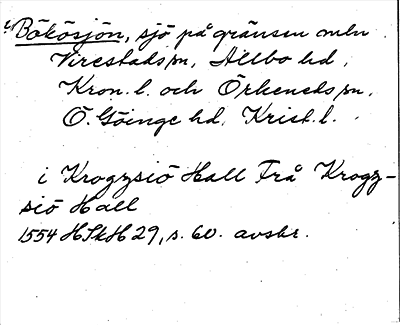 Bökösjön, sjö på gränsen mln
Virestads sn, Allbo hd,
Kron. l. och Örkeneds sn,
Ö. Göinge hd, Krist. l.
i Krogzsiö Hall Frå Krogz-
siö Hall
1554 HSkH 29, s. 60. avskr.